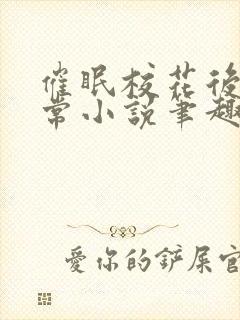 催眠校花後
常小說筆趣
愛你的鏟屎官